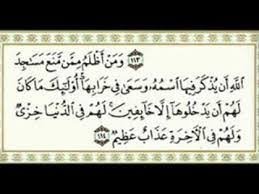 ﴿١١٣﴾ وَمَنْ أَظْلَمُ مِمَّن مَّنَعَ مَسَٰجِدَ
ٱللَّهِ أَن يُذْكَرَ فِيهَا ٱسْمُهُۥ وَسَعَىٰ فِى خَرَابِهَآ أُو۟لَٰٓئِكَ مَا كَانَ
لَهُمْ أَن يَدْخُلُوهَآ إِلَّا خَآئِفِينَ لَهُمْ فِى ٱلدُّنْيَا خِزْىٌ
وَلَهُمْ فِى ٱلْءَاخِرَةِ عَذَابٌ عَظِيمٌ ﴿١١٤﴾